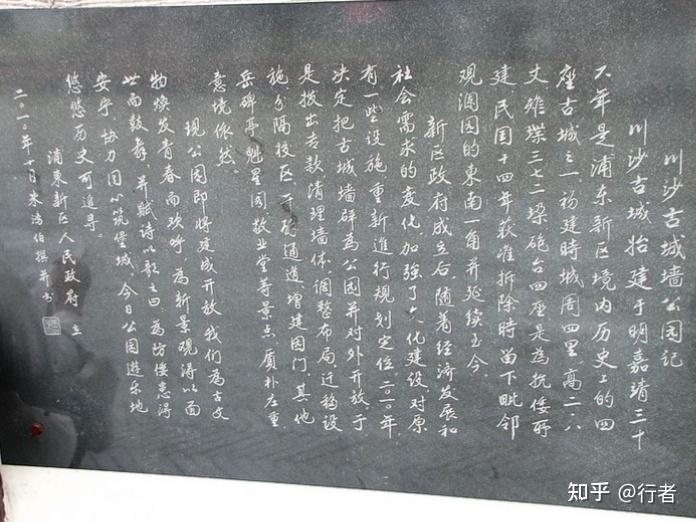 川沙古城墙公园记
川沙古城始建于明嘉靖三十
六年是浦东新区境内历史上的四
座古城之一初建時城周四里高二八
丈雉堞三七二垛砲台四座是為抗倭所
建民国十四年获准拆除時留下毗邻
观澜园的東南一角并延续至今
新区政府成立后随着经济发展和
社会需求的変化加強了文化建设对原
有一些设施重新進行規划定位二〇一〇年
决定把古城墙群為公园并对外开放于
是拨出专款清理墙体调整布局迁移设
施分隔校区 通道增建园门其他
岳碑亭魁星阁敬业堂等景点质朴庄重
意境依然
现公园即将建成开放我们為古文
物焕发青春而欢呼為新景观得以面
世而鼓舞并赋诗以歌之曰為防倭患得
安宁協力同心筑堡城今日公园遊乐地
悠悠历史可追寻
浦東新区人民政府 立
二〇一〇年十月 朱鸿伯撰并书
知乎 @行者